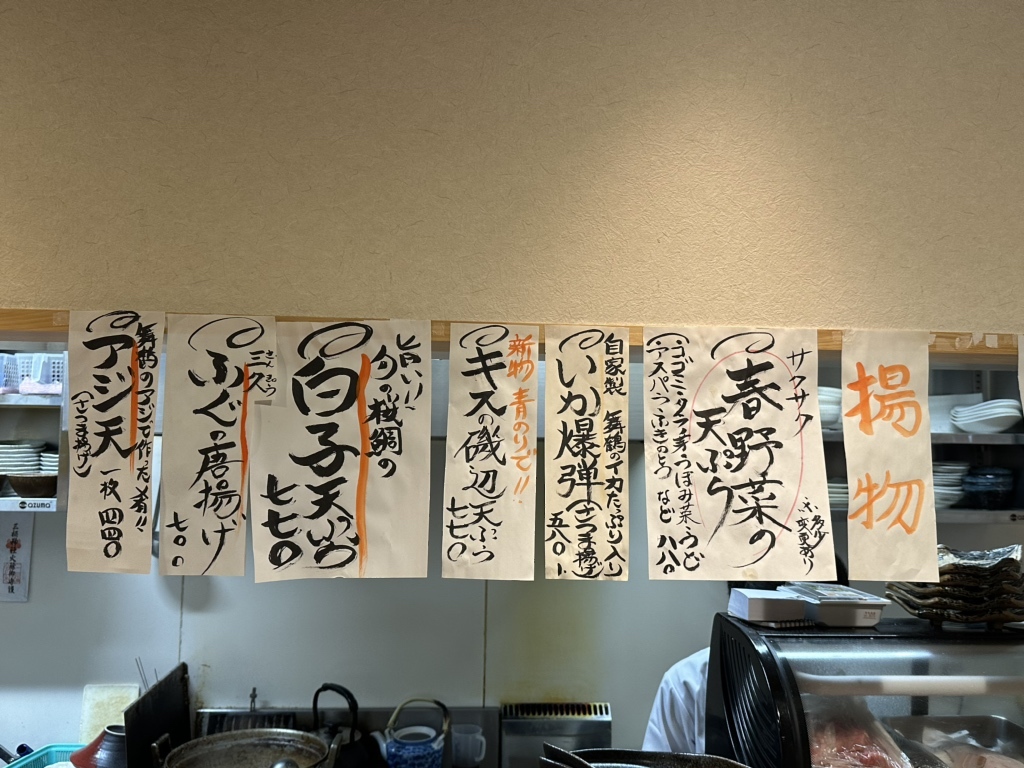 揚物
サクサク
春野菜の
天ぷら
(コゴミ・タラの芽・つぼみ菜・うど
・アスパラ・ふきのとう など 八八〇
※多少
変更有り
自家製 舞鶴のイカたっぷり入り
いか爆弾(さつま揚げ)
五八〇
新物 青のりで!!
キスの磯辺天ぷら
七七〇
旨い!
旬の桜鯛の
白子天ぷら
七七〇
三久
ふぐの唐揚げ
七〇〇
舞鶴のアジで作った肴!!
アジ天 一枚 四四〇
(さつま揚げ)
azuma